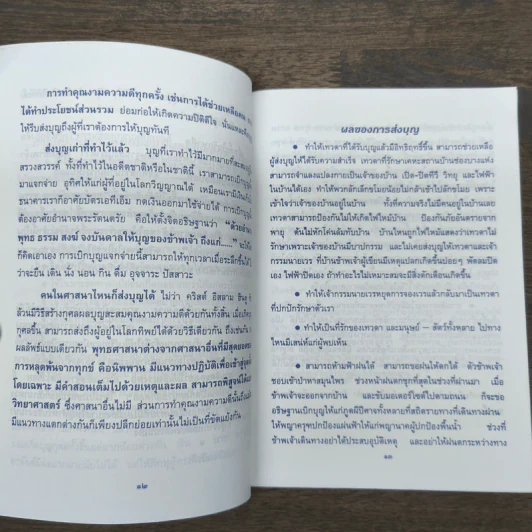 การทำคุณงามความดีทุกครั้ง เช่นการได้ช่วยเหลือคน
ได้ทำประโยชน์ส่วนรวม ย่อมก่อให้เกิดความปิติดีใจ
ให้รีบส่งบุญถึงผู้ที่เราต้องการให้บุญทันที
ส่งบุญเก่าที่ทำไว้แล้ว บุญที่เราทำไว้มีมากมายที่สะสม
สรวงสวรรค์ ทั้งที่ทำไว้ในอดีตชาติหรือในชาตินี้ เราสามารถเบิกบุญ
มาแจกจ่าย อุทิศให้แก่ผู้ที่อยู่ในโลกวิญญาณได้ เหมือนเรามีเงิน
ธนาคารเราก็อาศัยบัตรเอทีเอ็ม กดเงินออกมาใช้จ่ายได้ การเบิกบุญ
ต้องอาศัยอำนาจพระรัตนตรัย คือให้ตั้งจิตอธิษฐานว่า "ด้วยอำนาจ
พุทธ ธรรม สงฆ์ จงบันดาลให้บุญของข้าพเจ้า ถึงแก่....."
ก็คิดเอาเอง การเบิกบุญแจกจ่ายนี้สามารถทำให้ทุกเวลาเมื่อระลึกขึ้นได้
ว่าจะยืน เดิน นั่ง นอน กิน ดื่ม อุจจาระ ปัสสาวะ
คนในศาสนาไหนก็ส่งบุญได้ ไม่ว่า คริสต์ อิสลาม ฮินดู
ล้วนมีวิธีสร้างกุศลผลบุญสะสมคุณงามความดีด้วยกันทั้งสิ้น เมื่อ
กุศลขึ้น สามารถส่งถึงผู้อยู่ในโลกทิพย์ได้ด้วยวิธีเดียวกัน ถึงเช่นกัน
ผลลัพธ์แบบเดียวกัน พุทธศาสนาต่างจากศาสนาอื่นที่มีสุดยอด
การหลุดพ้นจากทุกข์ คือนิพพาน มีแนวทางปฏิบัติเพื่อเข้าสู่
โดยเฉพาะ มีคำสอนเต็มไปด้วยเหตุและผล สามารถพิสูจน์ได้
วิทยาศาสตร์ ซึ่งศาสนาอื่นไม่มี ส่วนการทำคุณงามความดีนั้น
มีแนวทางแตกต่างกันก็เพียงปลีกย่อยเท่านั้นไม่เป็นที่ขัดแย้งกัน
๑๒
ผลของการส่งบุญ
● ทำให้เทวดาที่ได้รับบุญแล้วมีอิทธิฤทธิ์ขึ้น สามารถช่วยเหลือ
ผู้ส่งบุญให้ได้รับความสำเร็จ เทวดาที่รักษาเคหะสถานบ้านช่องบางแห่ง
สามารถจำแลงแปลงกายเป็นเจ้าของบ้าน เปิด-ปิดทีวี วิทยุ และไฟฟ้า
ในบ้านได้เอง ทำให้พวกลักเล็กขโมยน้อยไม่กล้าเข้าไปลักขโมย เพราะ
เข้าใจว่าเจ้าของบ้านอยู่ในบ้าน ทั้งที่ความจริงไม่มีคนอยู่ในบ้านเลย
เทวดาสามารถป้องกันไม่ให้เกิดไฟไหม้บ้าน ป้องกันภัยอันตรายจาก
พายุ ต้นไม้หักโค่นล้มทับบ้าน บ้านไหนถูกไฟไหม้แสดงว่าเทวดาไม่
รักษาเพราะเจ้าของบ้านมีบาปกรรม และไม่เคยส่งบุญให้เทวดาและเจ้า
กรรมนายเวร ที่บ้านข้าพเจ้าผู้เขียนมีเหตุแปลกเกิดขึ้นบ่อยๆ พัดลมปิด
เอง ไฟฟ้าปิดเอง ถ้าทำอะไรไม่เหมาะสมจะมีสิ่งดักเตือนเกิดขึ้น
● ทำให้เจ้ากรรมนายเวรหยุดการจองเวรแล้วกลับมาเป็นเทวดา
ที่ปกปักรักษาตัวเรา
● ทำให้เป็นที่รักของเทวดา และมนุษย์ – สัตว์ทั้งหลาย ไปทาง
ไหนมีเสน่ห์แก่ผู้พบเห็น
● สามารถห้ามฟ้าฝนได้ สามารถขอฝนให้ตกได้ ตัวข้าพเจ้า
ชอบเข้าป่าหาสมุนไพร ช่วงหน้าฝนตกชุกที่สุดในช่วงที่ผ่านมา เมื่อ
ข้าพเจ้าจะออกจากบ้าน และขับมอเตอร์ไซค์ไปตามถนน ก็จะขอ
อธิษฐานเบิกบุญให้แก่ภูตผีปีศาจทั้งหลายที่สถิตรายทางที่เดินทางผ่าน
ให้พญาครุฑปกป้องแผ่นฟ้าให้แก่พญานาคผู้ปกป้องพื้นน้ำ ช่วงที่
ข้าพเจ้าเดินทางอย่าได้ประสบอุบัติเหตุ และอย่าให้ฝนตกระหว่างทาง
๑๓